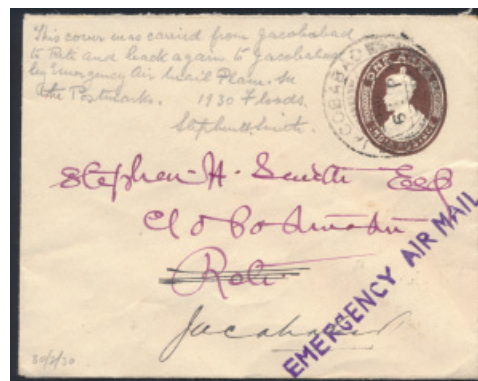 This cover was carried from Jacobabad
to Reti and back again to Jacobabad
by Emergency Air Mail Plane.
the Postmarks. 1930 Floods.
Stephen H Smith.
JACOBABAD
ONE ANNA
Stephen H. Smith Esq
c/o
Reti
Jacobabad
EMERGENCY AIR MAIL
30/8/30